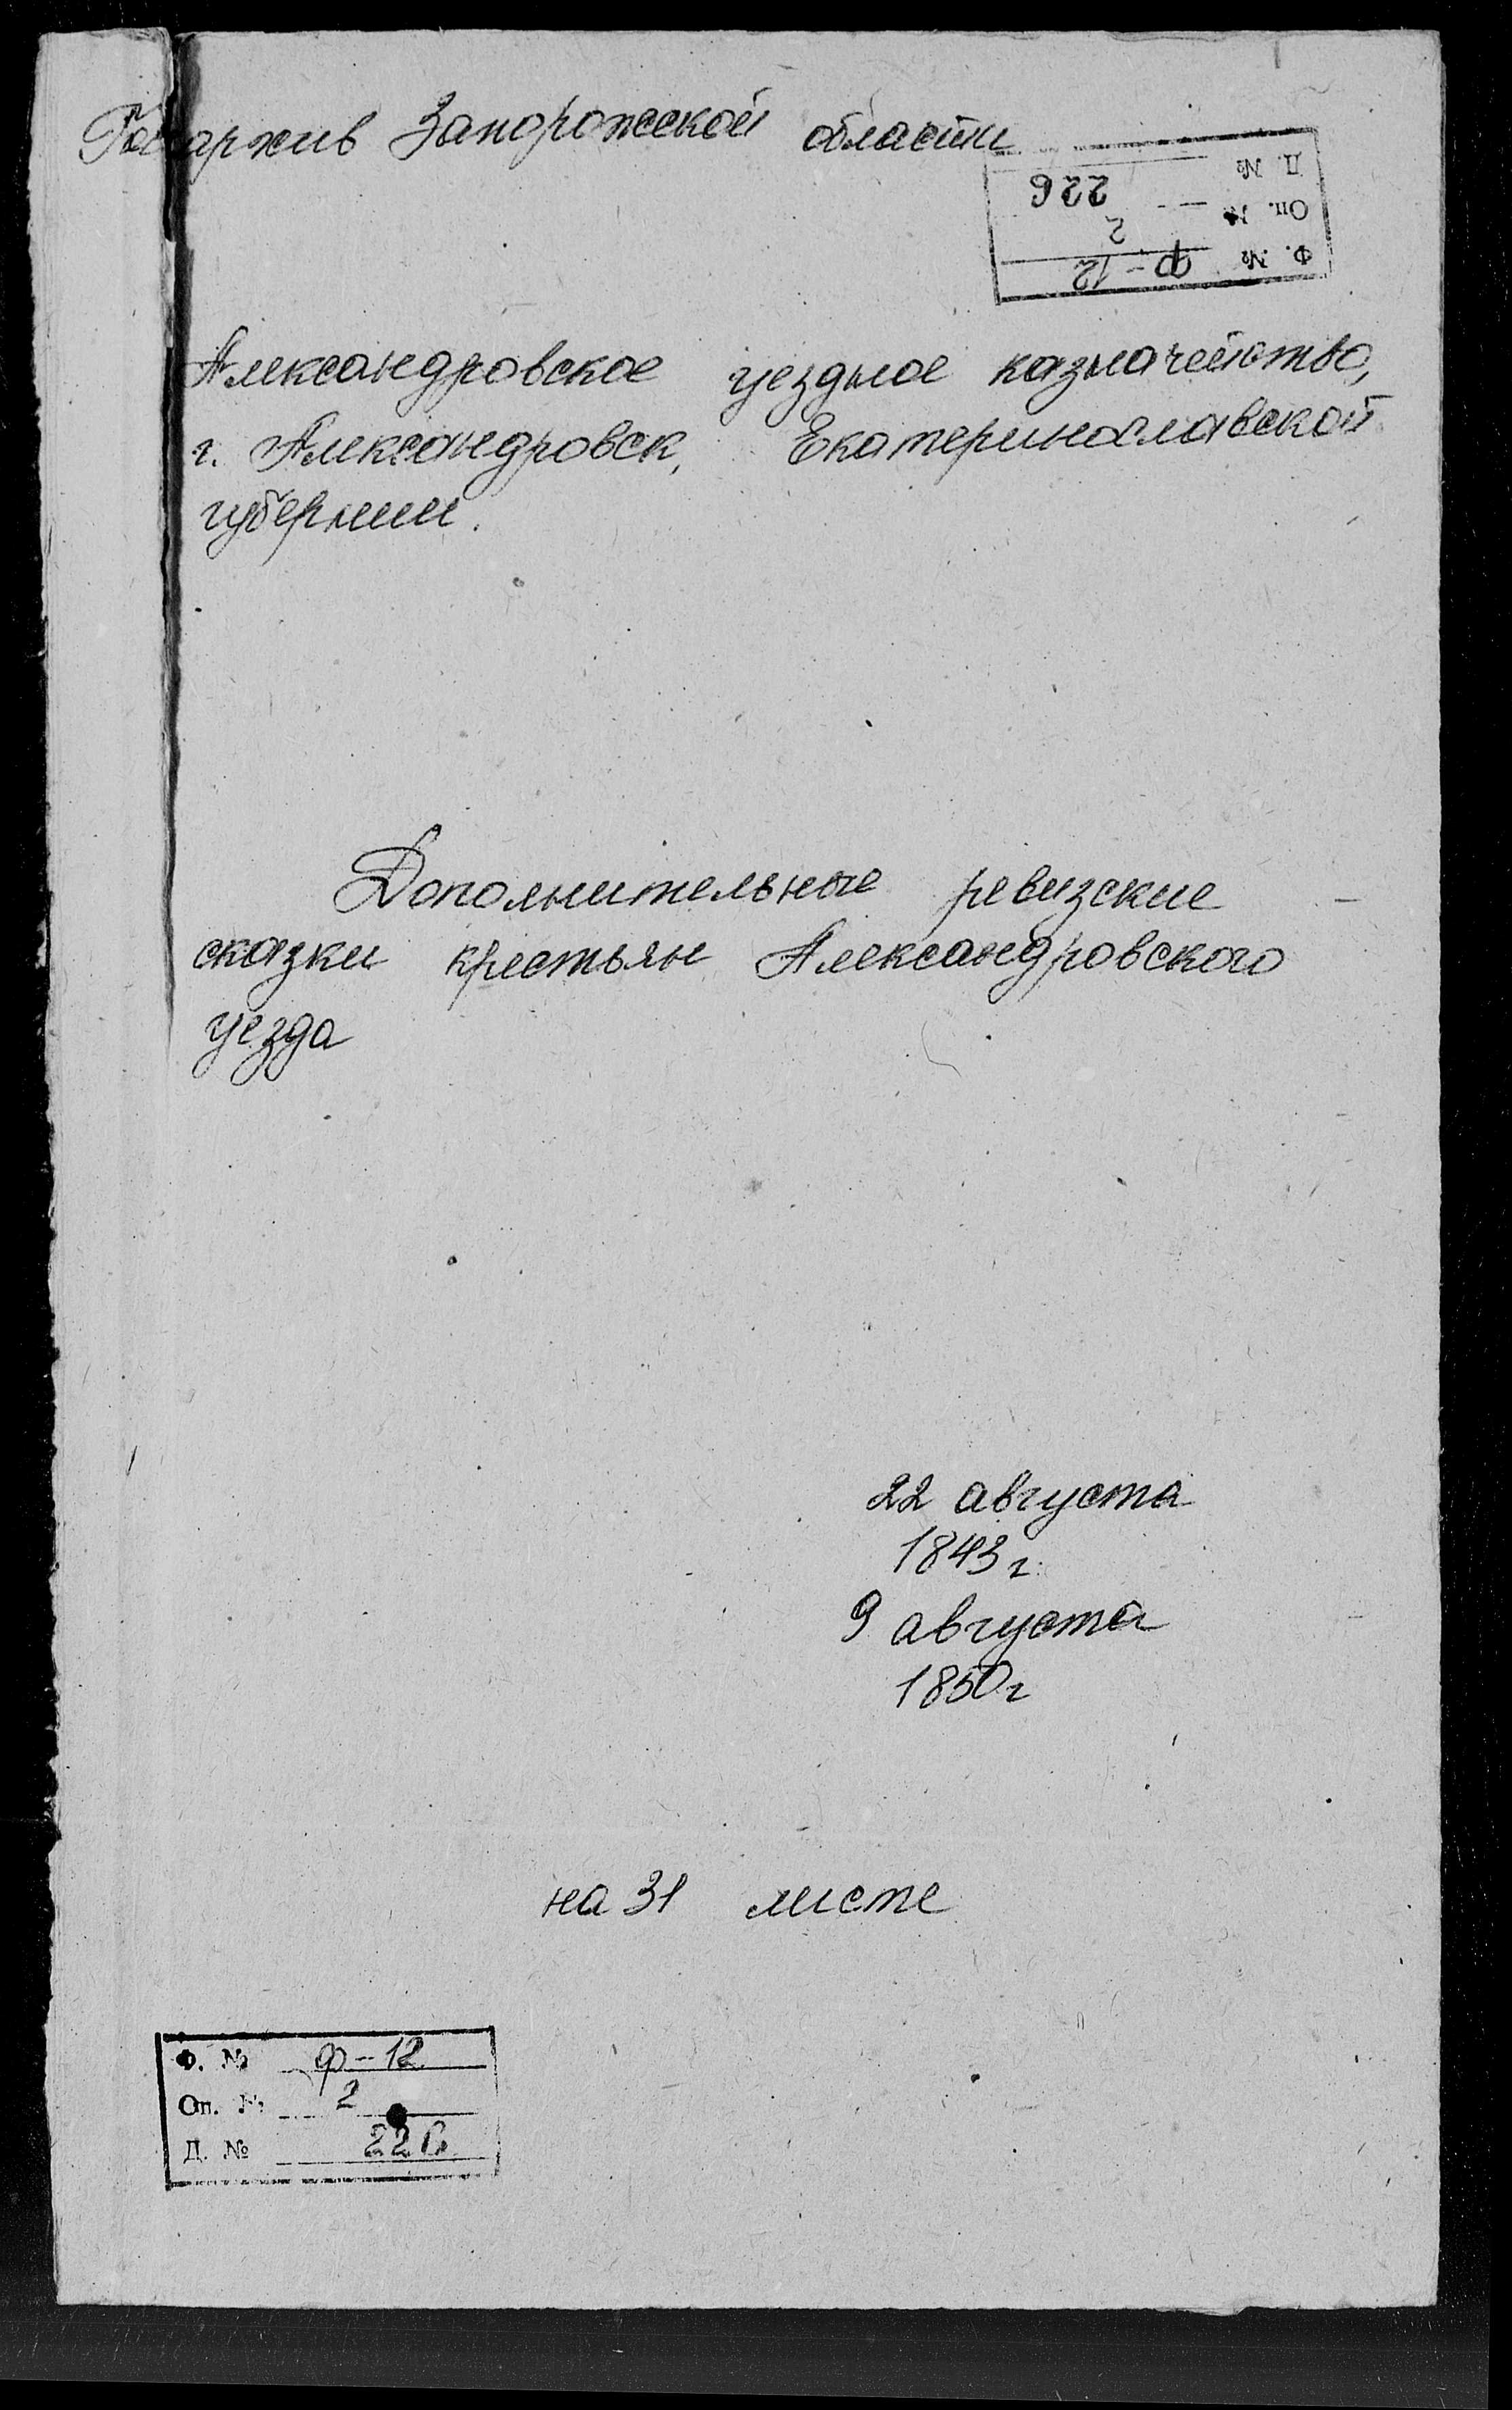 Госархив Запорожской области
Д. № 226
Оп. № 2
Ф. № Ф-12
Александровское уездное казначейство,
г. Александровск, Екатеринославской
губернии.
Дополнительные ревизские
сказки крестьян Александровского
уезда
22 августа
1843 г.
9 августа
1850 г
на 31 листе
Ф. № Ф-12
Оп. № 2
Д. № 226